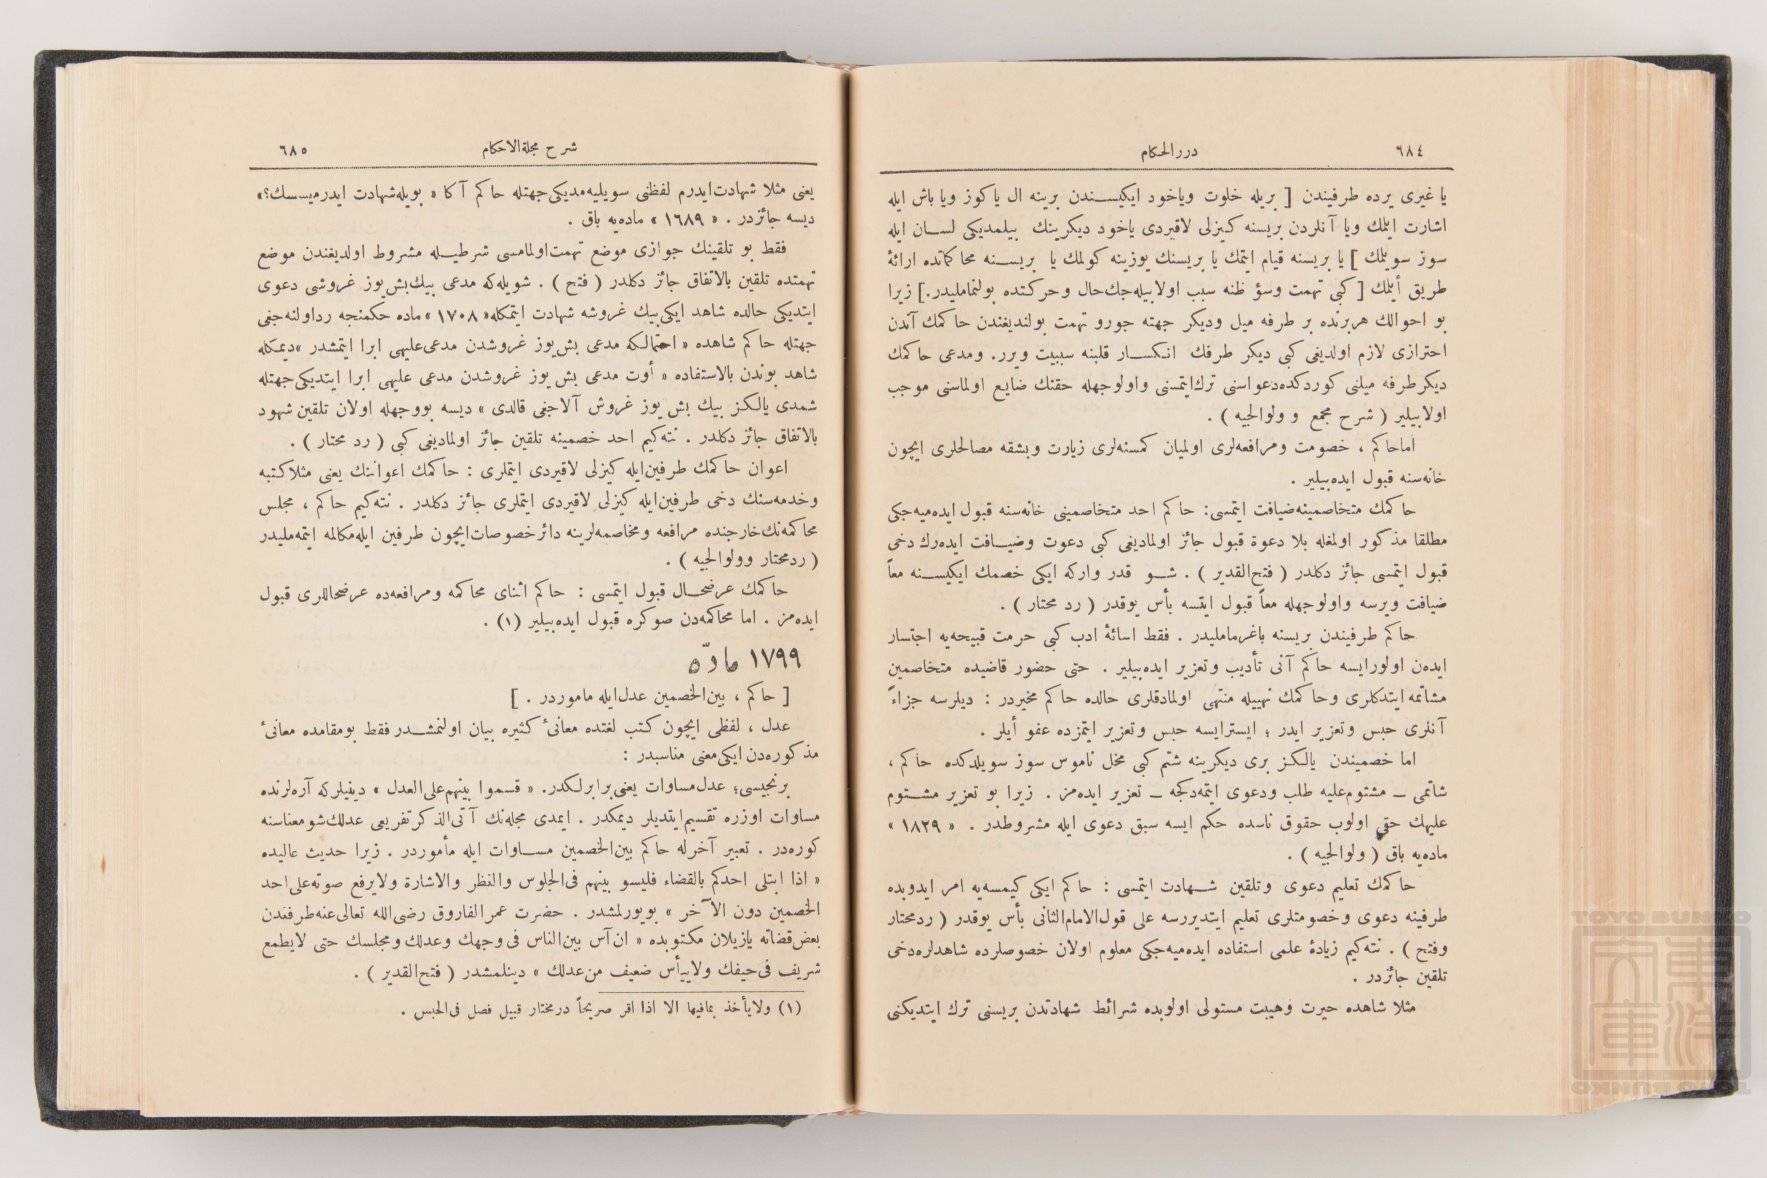 ٦٨٤
دررالحكام
يا غيرى يرده طرفيندن [ بريله خلوت وياخود ايكيسندن برينه ال ياكوز ويا باش ايله
اشارت ايتمك ويا آنلردن بريسنه كيزلى لاقيردى ياخود ديكرينك بيلمديكى لسان ايله
سوز سويلمك ] يا بريسنه قيام ايتمك يا بريسنك يوزينه كولمك يا بريسنه محاكماتده ارائۀ
طريق أيلمك [ كبى تهمت وسؤ ظنه سبب اولابيله‌جك حال وحركتده بولنمامليدر.] زيرا
بو احوالك هربرنده بر طرفه ميل وديكر جهته جورو تهمت بولنديغندن حاكمك آندن
احترازى لازم اولديغى كبى ديكر طرفك انكسار قلبنه سببيت ويرر. ومدعى حاكمك
ديكرطرفه ميلنى كوردكده‌دعواسنى ترك‌ايتمسنى واولوجهله حقنك ضايع اولماسنى موجب
اولابيلير ( شرح مجمع و ولوالجيه ) .
اماحاكم ، خصومت ومرافعه‌لرى اولميان كمسنه‌لرى زيارت وبشقه مصالحلرى ايچون
خانه‌سنه قبول ايده‌بيلير .
حاكمك متخاصمينه‌ضيافت ايتمسى: حاكم احد متخاصمينى خانه‌سنه قبول ايده‌ميه‌جكى
مطلقا مذكور اولمغله بلا دعوة قبول جائز اولماديغى كبى دعوت وضيافت ايده‌رك دخى
قبول ايتمسى جائز دكلدر ( فتح‌القدير ) . شو قدر واركه ايكى خصمك ايكيسنه معاً
ضيافت ويرسه واولوجهله معاً قبول ايتسه بأس يوقدر ( رد محتار ) .
حاكم طرفيندن بريسنه باغرمامليدر . فقط اسائۀ ادب كبى حرمت قبيحه‌يه اجتسار
ايده‌ن اولورايسه حاكم آنى تأديب وتعزير ايده‌بيلير . حتى حضور قاضيده متخاصمين
مشاتمه ايتدكلرى وحاكمك نهييله منتهى اولمادقلرى حالده حاكم مخيردر : ديلرسه جزاءً
آنلرى حبس وتعزير ايدر ؛ ايسترايسه حبس وتعزير ايتمزده عفو أيلر .
اما خصميندن يالكز برى ديكرينه شتم كبى مخل ناموس سوز سويلدكده حاكم ،
شاتمى ــ مشتوم‌عليه طلب ودعوى ايتمه‌دكجه ــ تعزير ايده‌مز . زيرا بو تعزير مشتوم
عليهك حقى اولوب حقوق ناسده حكم ايسه سبق دعوى ايله مشروطدر . « ١٨٢٩ »
ماده‌يه باق ( ولوالجيه ) .
حاكمك تعليم دعوى وتلقين شهادت ايتمسى : حاكم ايكى كيمسه‌يه امر ايدوبده
طرفينه دعوى وخصومتلرى تعليم ايتديررسه على قول‌الامام‌الثانى بأس يوقدر ( ردمحتار
وفتح ) . نته‌كيم زيادۀ علمى استفاده ايده‌ميه‌جكى معلوم اولان خصوصلرده شاهدلره‌دخى
تلقين جائزدر .
مثلا شاهده حيرت وهيبت مستولى اولوبده شرائط شهادتدن بريسنى ترك ايتديكنى
شرح مجلة‌الاحكام
٦٨٥
يعنى مثلا شهادت‌ايدرم لفظنى سويليه‌مديكى‌جهتله حاكم آكا « بويله‌شهادت ايدرميسسك؟»
ديسه جائزدر . « ١٦٨٩ » ماده‌يه باق .
فقط بو تلقينك جوازى موضع تهمت‌اولمامسى شرطيله مشروط اولديغندن موضع
تهمتده تلقين بالاتفاق جائز دكلدر ( فتح ) . شويله‌كه مدعى بيك‌بش‌يوز غروشى دعوى
ايتديكى حالده شاهد ايكى‌بيك غروشه شهادت ايتمكله« ١٧٠٨ »ماده حكمنجه رداولنه‌جغى
جهتله حاكم شاهده « احتمالكه مدعى بش‌يوز غروشدن مدعى‌عليهى ابرا ايتمشدر »ديمكله
شاهد بوندن بالاستفاده « أوت مدعى بش يوز غروشدن مدعى عليهى ابرا ايتديكى‌جهتله
شمدى يالكز بيك بش يوز غروش آلاجغى قالدى » ديسه بووجهله اولان تلقين شهود
بالاتفاق جائز دكلدر . نته‌كيم احد خصمينه تلقين جائز اولماديغى كبى ( رد محتار ) .
اعوان حاكمك طرفين‌ايله كيزلى لاقيردى ايتملرى : حاكمك اعواننك يعنى مثلا كتبه
وخدمه‌سنك دخى طرفين‌ايله كيزلى لاقيردى ايتملرى جائز دكلدر . نته‌كيم حاكم ، مجلس
محاكمه‌نك‌خارجنده مرافعه ومخاصمه‌لرينه دائرخصوصات‌ايچون طرفين ايله‌مكالمه ايتمه‌مليدر
( ردمحتار وولوالجيه ) .
حاكمك عرضحال قبول ايتمسى : حاكم اثناى محاكمه ومرافعه‌ده عرضحاللرى قبول
ايده‌مز . اما محاكمه‌دن صوكره قبول ايده‌بيلير (١) .
١٧٩٩ مادّه
[ حاكم ، بين‌الخصمين عدل‌ايله مأموردر . ]
عدل ، لفظى ايچون كتب لغتده معانىٔ كثيره بيان اولنمشدر فقط بومقامده معانىٔ
مذكوره‌دن ايكى‌معنى مناسبدر :
برنجيسى؛ عدل‌مساوات يعنى برابرلكدر. « قسموا بينهم‌على‌العدل » دينيلركه آره‌لرنده
مساوات اوزره تقسيم‌ايتديلر ديمكدر . ايمدى مجله‌نك آتى‌الذكر تفريعى عدلك‌شومعناسنه
كوره‌در . تعبير آخرله حاكم بين‌الخصمين مساوات ايله مأموردر . زيرا حديث عاليده
« اذا ابتلى احدكم بالقضاء فليسو بينهم فى‌الجلوس والنظر والاشارة ولايرفع صوته‌على‌احد
الخصمين دون الآخر » بويورلمشدر . حضرت عمرالفاروق رضى‌الله تعالى‌عنه‌طرفندن
بعض‌قضاته يازيلان مكتوبده « ان‌آس بين‌الناس فى وجهك وعدلك ومجلسك حتى لايطمع
شريف فى‌حيفك ولاييأس ضعيف من‌عدلك » دينلمشدر ( فتح‌القدير ) .
(١) ولايأخذ بمافيها الا اذا اقر صريحاً درمختار قبيل فصل فى‌الحبس .
TOYO BUNKO